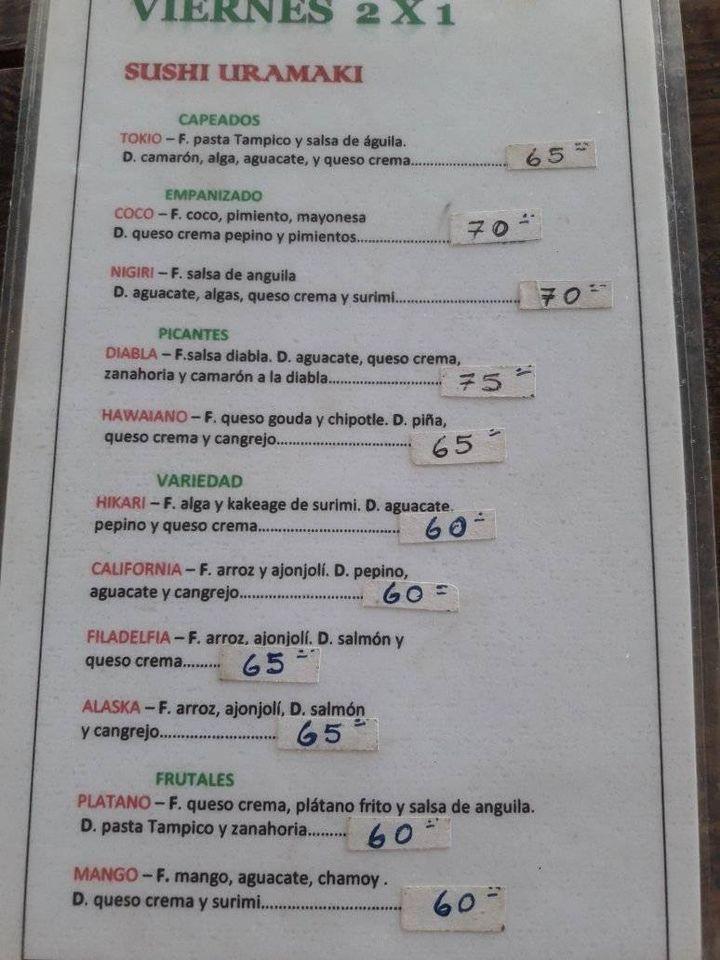 VIERNES 2 X 1
SUSHI URAMAKI
CAPEADOS
TOKIO – F. pasta Tampico y salsa de águila.
D. camarón, alga, aguacate, y queso crema........................ 65=
EMPANIZADO
COCO – F. coco, pimiento, mayonesa
D. queso crema pepino y pimientos....................... 70=
NIGIRI – F. salsa de anguila
D. aguacate, algas, queso crema y surimi............................... 70=
PICANTES
DIABLA – F.salsa diabla. D. aguacate, queso crema,
zanahoria y camarón a la diabla............................ 75=
HAWAIANO – F. queso gouda y chipotle. D. piña,
queso crema y cangrejo................................. 65=
VARIEDAD
HIKARI – F. alga y kakeage de surimi. D. aguacate.
pepino y queso crema.................................. 60=
CALIFORNIA – F. arroz y ajonjolí. D. pepino,
aguacate y cangrejo.............................. 60=
FILADELFIA – F. arroz, ajonjolí. D. salmón y
queso crema......... 65=
ALASKA – F. arroz, ajonjolí, D. salmón
y cangrejo............................ 65=
FRUTALES
PLATANO – F. queso crema, plátano frito y salsa de anguila.
D. pasta Tampico y zanahoria......... 60=
MANGO – F. mango, aguacate, chamoy .
D. queso crema y surimi.................................. 60=